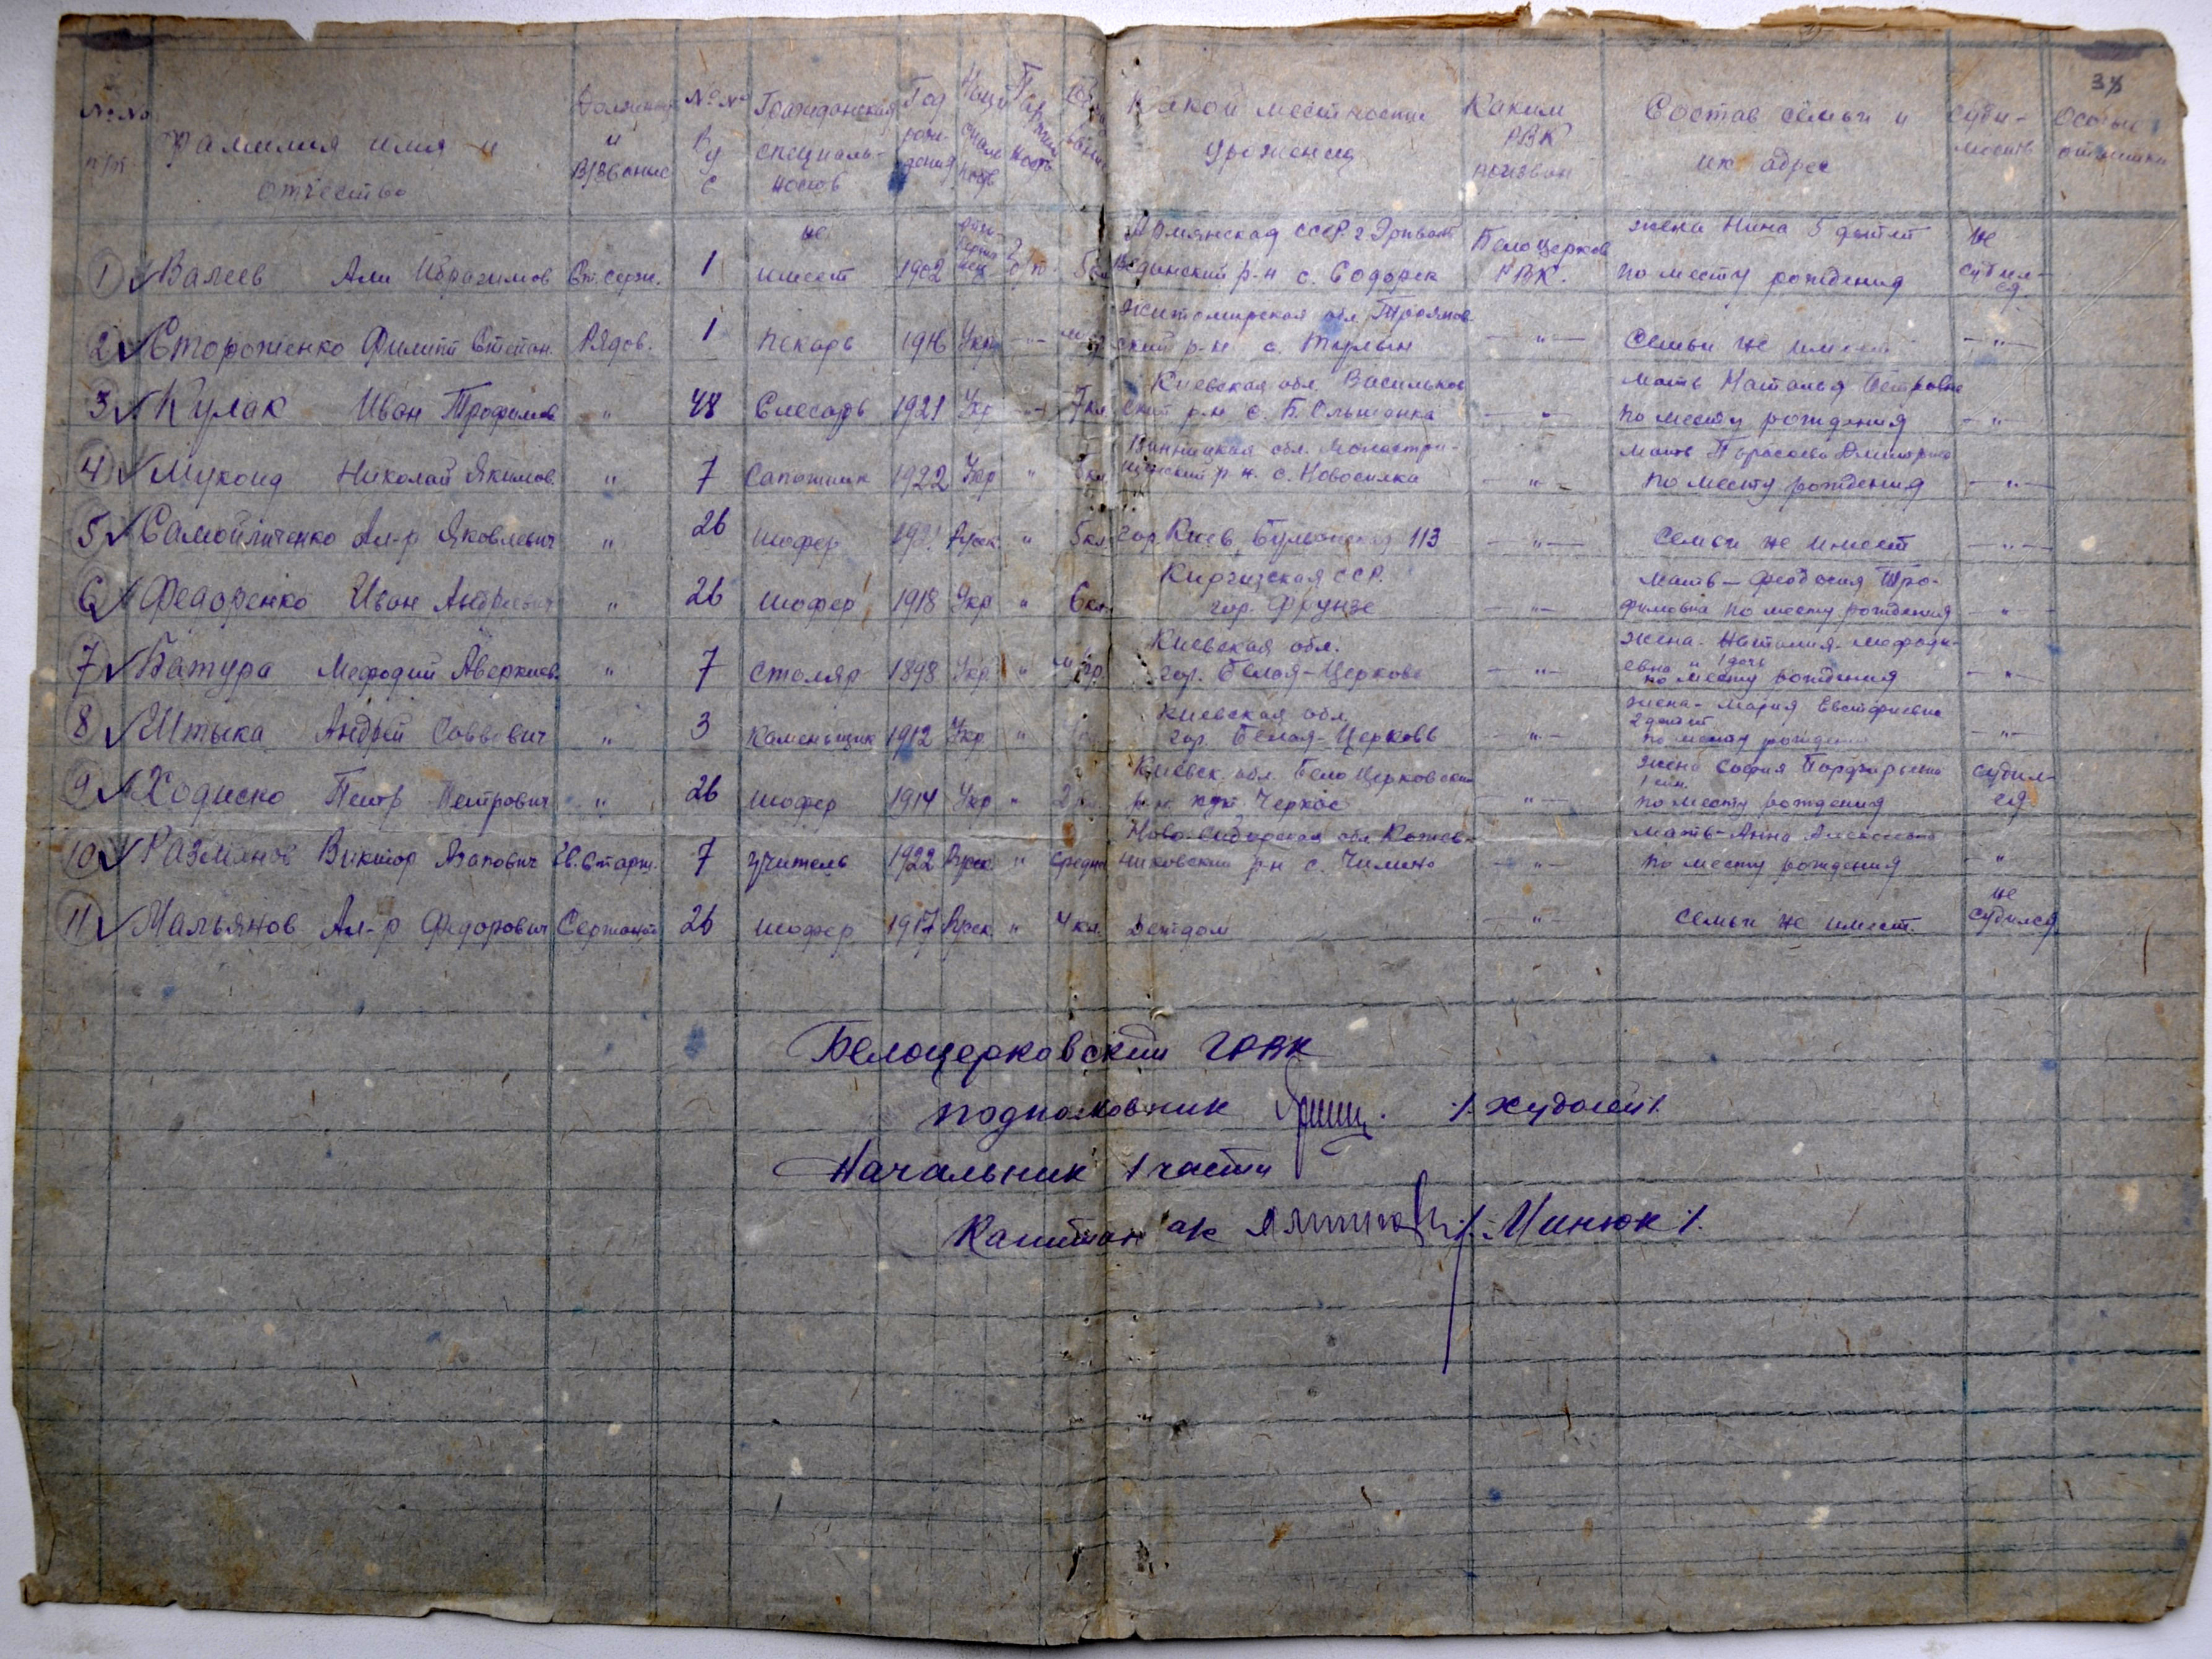 38
№ № п/п Фамилия имя и отчество Должност и В/звание №№ ВУС Гражданская специальность Год рождения Национальность Партийность Какой местности уроженец Каким РВК призван Состав семьи и их адрес Судимость Особые отметки
1 Валеев Али Ибрагимов Ст. серж. 1 не имеет 1902 б/п 5 кл Армянская ССР г Эривань р-н с. БелоЦерков РВК. жена Нина 5 детей по месту рождения не судился
2 Стороженко Филипп Степан. Рядов. 1 пекарь 1916 Укр -"- Житомирская обл. Троянов ский р-н с. -"- Семьи не имеет -"-
3 Кулак Иван Трофимов " 48 Слесарь 1921 Укр -"- 7 кл Киевская обл. Васильков ский р-н с. Б. Ольшанка -"- мать Наталья Петровна по месту рождения -"-
4 Мукоид Николай Якимов. " 7 Сапожник 1922 Укр " кл Винницкая обл. Монастри- щенский р-н. с. Новоселка -"- мать по месту рождения -"-
5 Самойличенко Ал-р Яковлевич " 26 шофер Руск. " 5 кл гор Киев 113 -"- Семьи не имеет -"-
6 Федоренко Иван Андреевич " 26 шофер 1918 Укр " 6 кл Киргизская ССР. гор. Фрунзе -"- мать – Феодосия Тро- фимовна по месту рождения -"-
7 Батура Мефодий Аверкиев. " 7 столяр 1898 Укр " м/гр. Киевская обл. гор. Белая-Церковь -"- жена - Наталия - мефоди- евна и 1 дочь по месту рождения -"-
8 Штыка Андрей Саввович " 3 Каменьщик 1912 Укр " Киевская обл. гор. Белая-Церковь -"- жена - Мария 2 детей по месту рождения -"-
9 Ходиско Петр Петрович " 26 шофер 1914 Укр " 2 кл Киевск. обл. БелоЦерковский р-н Черкас -"- жена София 1 сын. по месту рождения судил- ся
10 Размянов Виктор Гв. Старш. 7 учитель 1922 Руск " средне Ново-Сибирская обл. Кожев- никовский р-н с. Чилино -"- мать - Анна Алексеевна по месту рождения -"-
11 Мальянов Ал-р Федорович Сержант 26 шофер 1917 Руск " 4 кл. Детдом -"- Семьи не имеет. не судился
Белоцерковский ГРВК
подполковник /. Худолей /.
Начальник 1 части
Капитан а/с /. Минюк /.